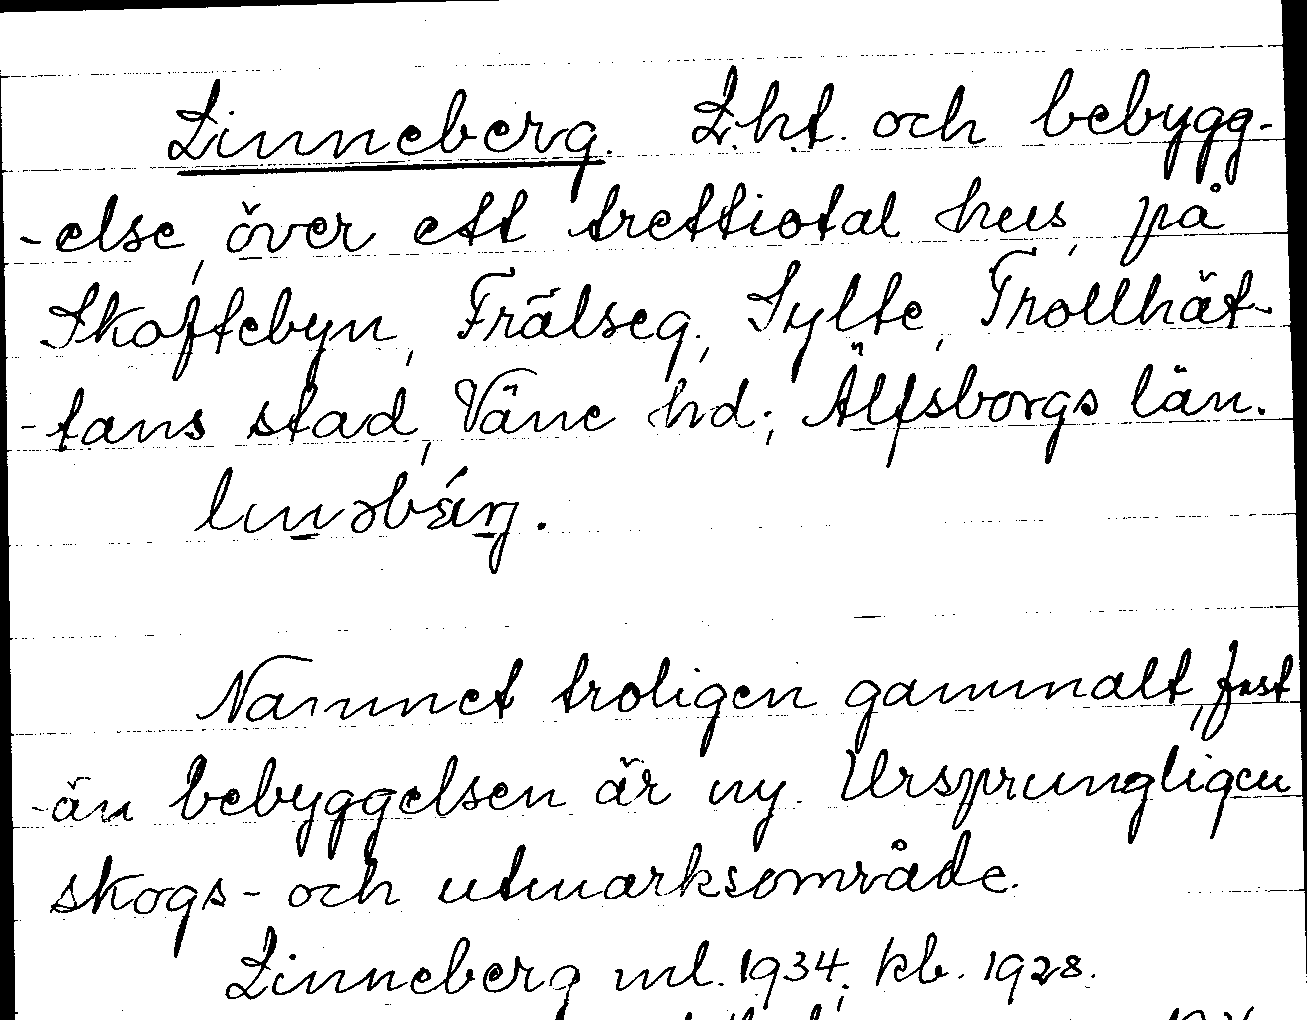 Linneberg. L.h.t. och bebygg-
-else, över ett trettiotal hus, på
Skoftebyn, Frälseg., Sylte, Trollhät-
-tans stad, Väne hd; Älfsborgs län.
Namnet troligen gammalt, fast
-än bebyggelsen är ny. Ursprungligen
skogs- och utmarksområde.
Linneberg ml. 1934; kb. 1928.